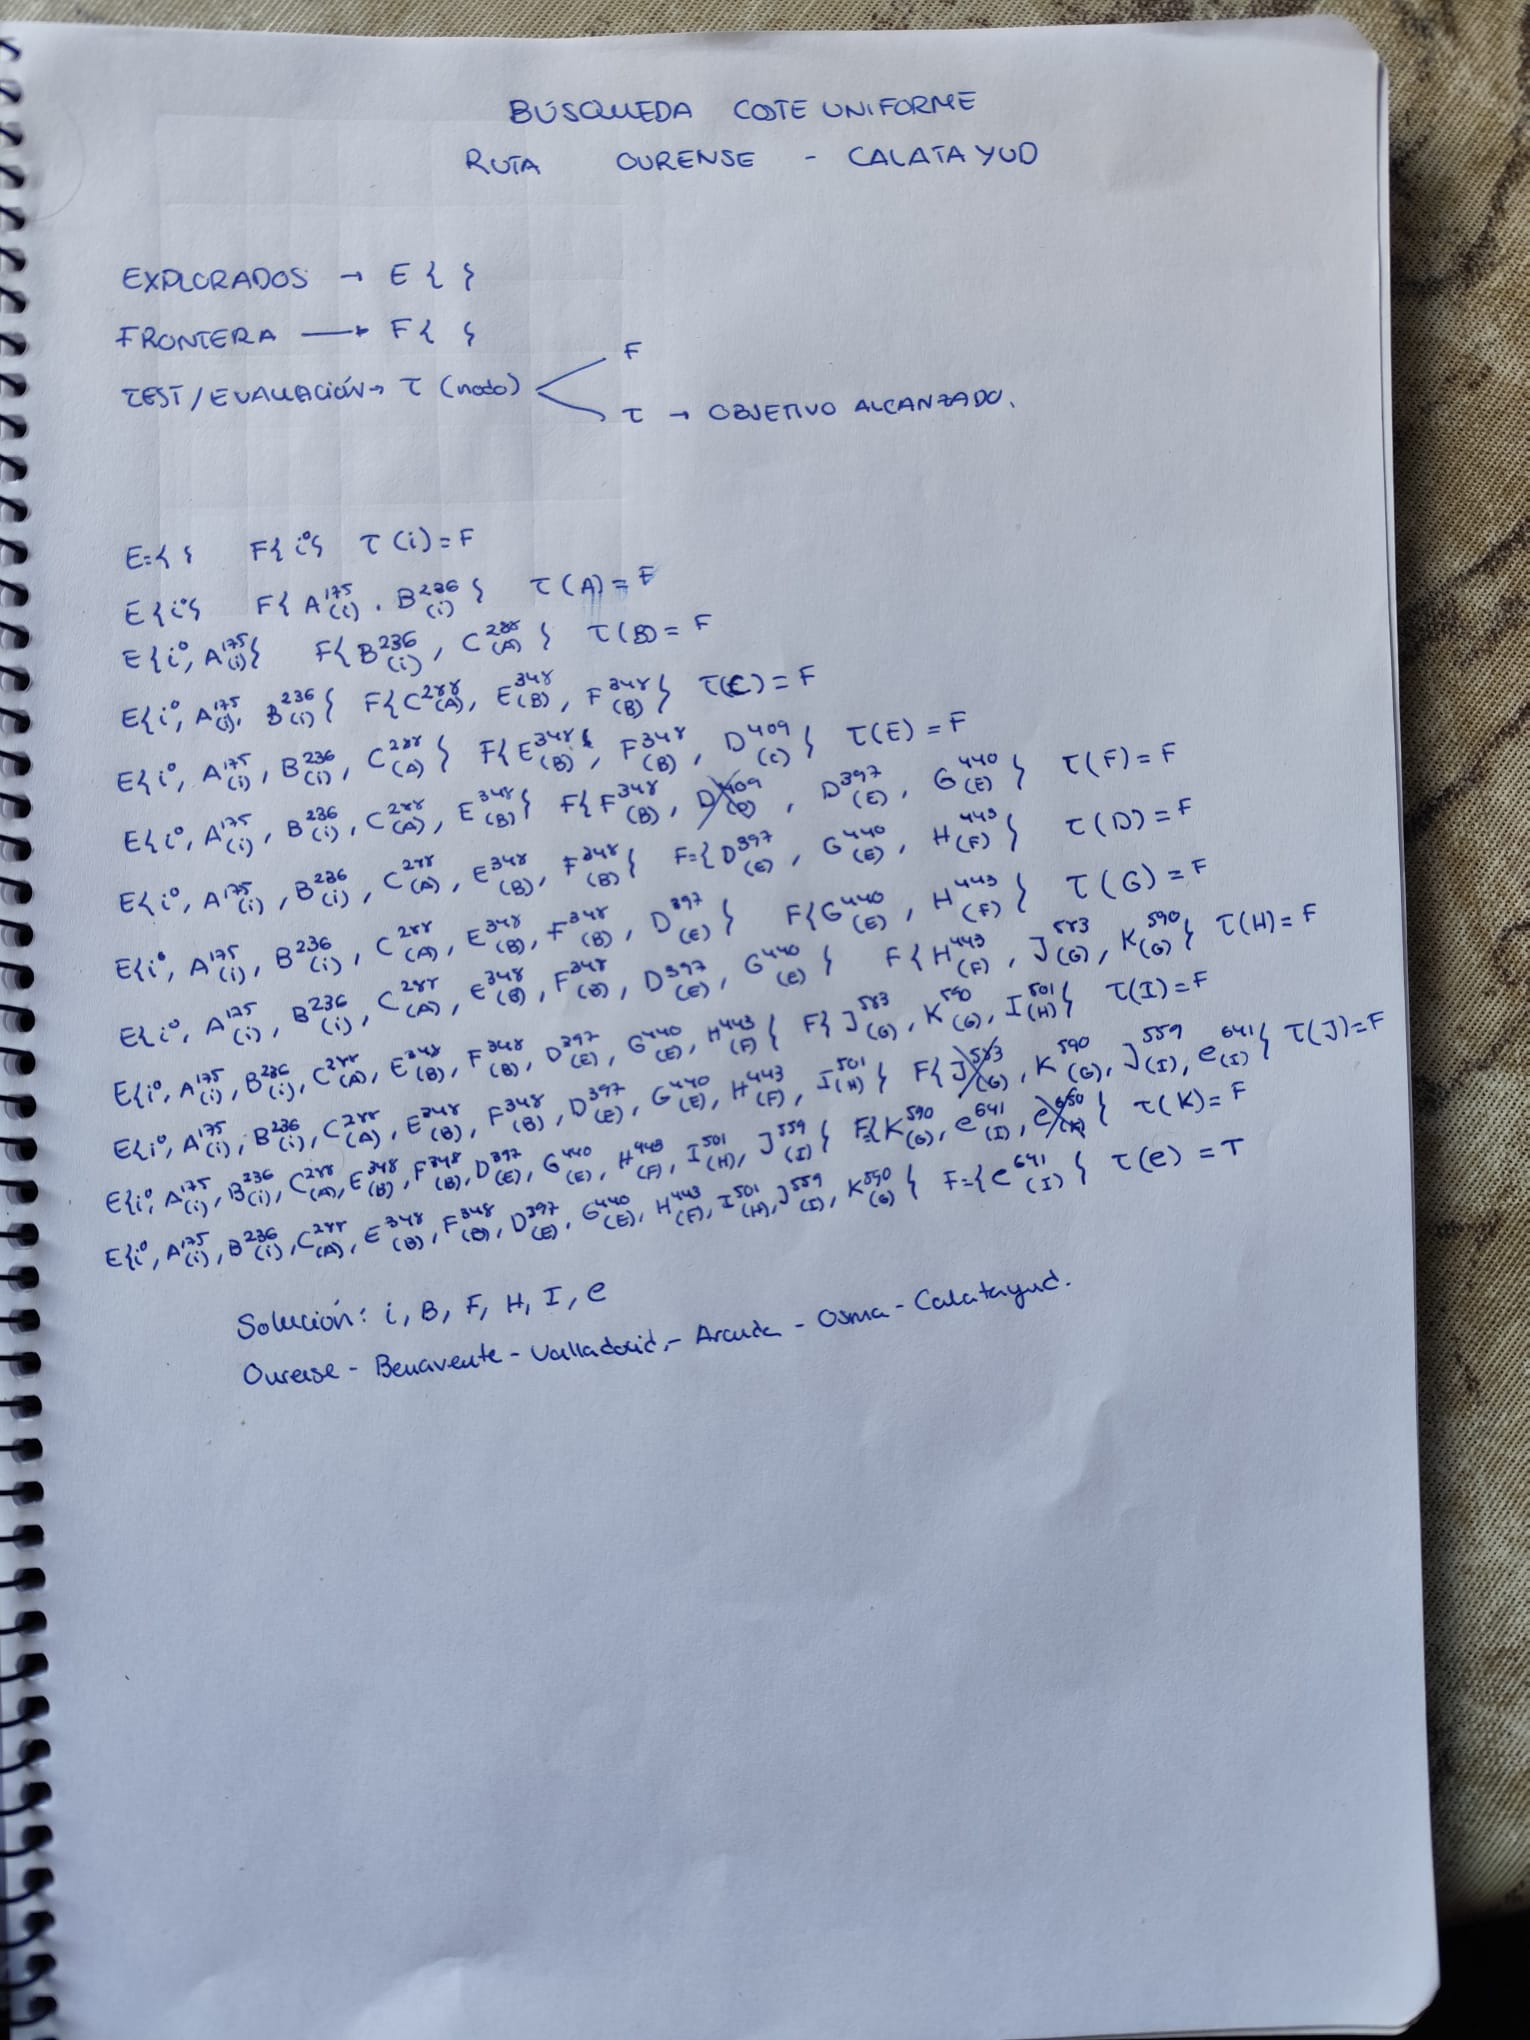 BÚSQUEDA COSTE UNIFORME
RUTA OURENSE - CALATAYUD
EXPLORADOS → E { }
FRONTERA → F { }
F
TEST / EVALUACIÓN → T (nodo)
T → OBJETIVO ALCANZADO.
E={ } F{ i⁰} T (i) = F
E{i⁰} F{ A¹⁷⁵(i), B²³⁶(i) } T (A) = F
E{i⁰, A¹⁷⁵(i)} F{B²³⁶(i), C²⁸⁸(A) } T(B) = F
E{i⁰, A¹⁷⁵(i), B²³⁶(i) } F{C²⁸⁸(A), E³⁴⁸(B), F³⁴⁸(B) } T(C) = F
E{i⁰, A¹⁷⁵(i), B²³⁶(i), C²⁸⁸(A) } F{E³⁴⁸(B), F³⁴⁸(B), D⁴⁰⁹(C) } T(E) = F
E{i⁰, A¹⁷⁵(i), B²³⁶(i), C²⁸⁸(A), E³⁴⁸(B)} F{F³⁴⁸(B), D⁴⁰⁹, D³⁹⁷(E), G⁴⁴⁰(E) } T(F) = F
E{i⁰, A¹⁷⁵(i), B²³⁶(i), C²⁸⁸(A), E³⁴⁸(B), F³⁴⁸(B) } F={D³⁹⁷(E), G⁴⁴⁰(E), H⁴⁴³(F) } T(D) = F
E{i⁰, A¹⁷⁵(i), B²³⁶(i), C²⁸⁸(A), E³⁴⁸(B), F³⁴⁸(B), D³⁹⁷(E) } F{G⁴⁴⁰(E), H⁴⁴³(F) } T(G) = F
E{i⁰, A¹⁷⁵(i), B²³⁶(i), C²⁸⁸(A), E³⁴⁸(B), F³⁴⁸(B), D³⁹⁷(E), G⁴⁴⁰(E) } F{H⁴⁴³(F), J⁵⁸³(G), K⁵⁹⁰(G)} T(H) = F
E{i⁰, A¹⁷⁵(i), B²³⁶(i), C²⁸⁸(A), E³⁴⁸(B), F³⁴⁸(B), D³⁹⁷(E), G⁴⁴⁰(E), H⁴⁴³(F) } F{J⁵⁸³(G), K⁵⁹⁰(G), I⁵⁰¹(H)} T(I) = F
E{i⁰, A¹⁷⁵(i), B²³⁶(i), C²⁸⁸(A), E³⁴⁸(B), F³⁴⁸(B), D³⁹⁷(E), G⁴⁴⁰(E), H⁴⁴³(F), I⁵⁰¹(H) } F{J⁵⁸³(G), K⁵⁹⁰(G), J⁵⁵⁹(I), e⁶⁴¹(I) } T(J) = F
E{i⁰, A¹⁷⁵(i), B²³⁶(i), C²⁸⁸(A), E³⁴⁸(B), F³⁴⁸(B), D³⁹⁷(E), G⁴⁴⁰(E), H⁴⁴³(F), I⁵⁰¹(H), J⁵⁵⁹(I) } F={K⁵⁹⁰(G), e⁶⁴¹(I), e⁶⁵⁰ } T(K) = F
E{i⁰, A¹⁷⁵(i), B²³⁶(i), C²⁸⁸(A), E³⁴⁸(B), F³⁴⁸(B), D³⁹⁷(E), G⁴⁴⁰(E), H⁴⁴³(F), I⁵⁰¹(H), J⁵⁵⁹(I), K⁵⁹⁰(G) } F={e⁶⁴¹(I) } T(e) = T
Solución: i, B, F, H, I, e
Ourense - Benavente - Valladolid - Aranda - Osma - Calatayud.